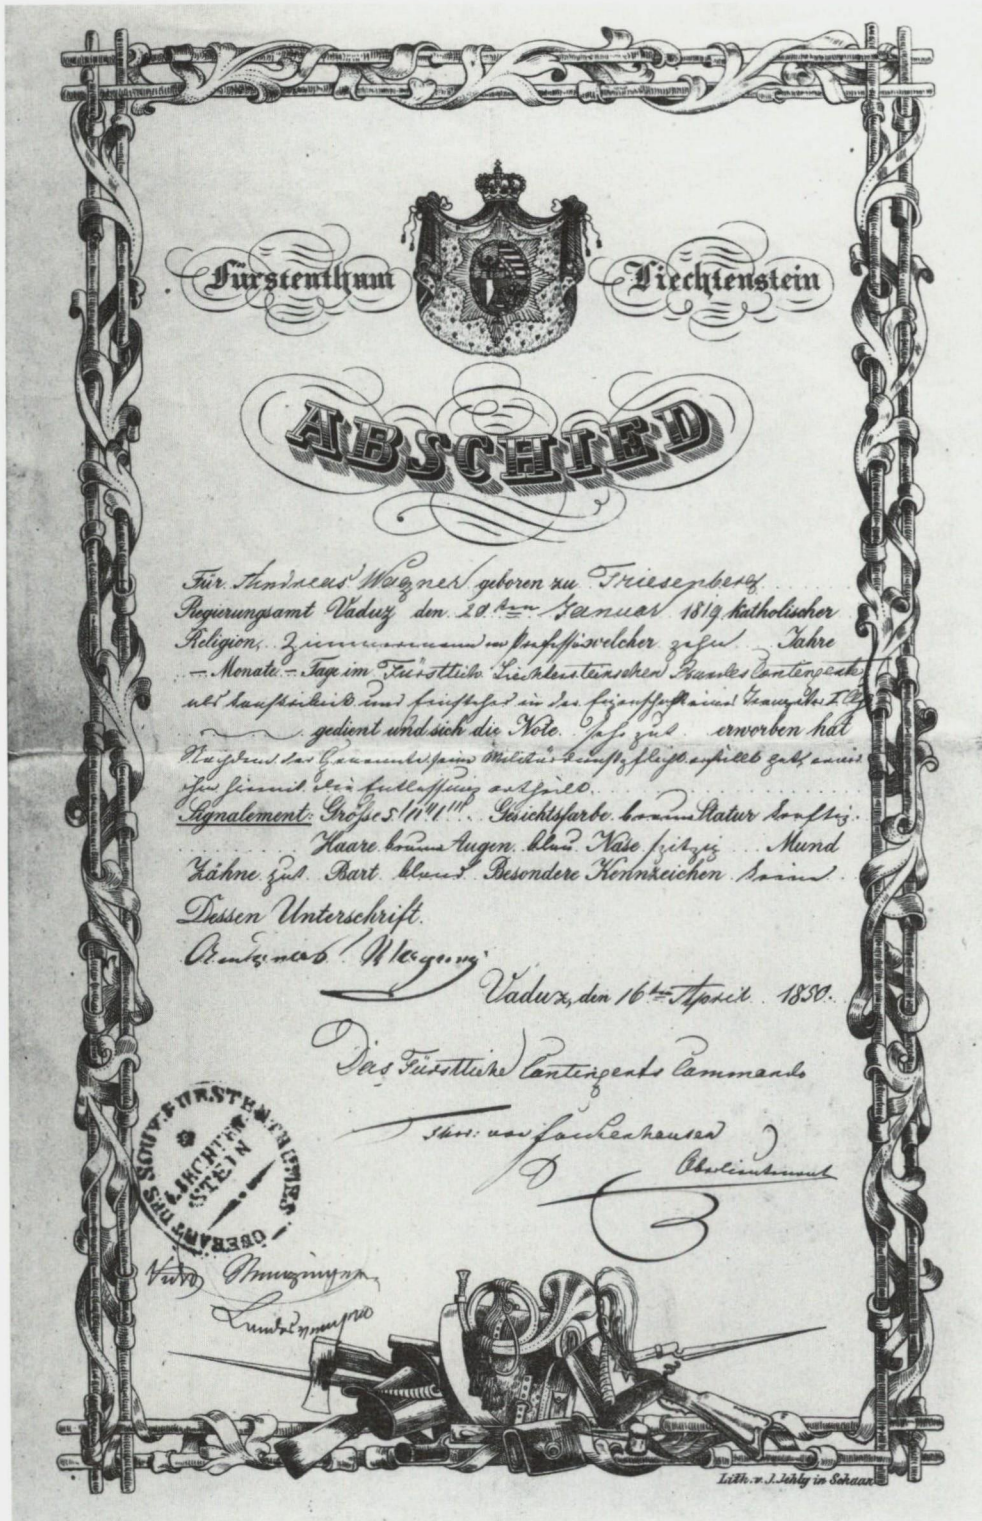 Fürstenthum Liechtenstein
ABSCHIED
Für Andreas Wagner geboren zu Triesenberg
Regierungsamt Vaduz den 20ten Januar 1819 katholischer
Religion, Zimmermann von Profession welcher zehn Jahre
– Monate – Tage im Fürstlich Liechtensteinschen Bundes Contingente
als und Einsteher in der Eigenschaft eines
gedient und sich die Note sehr gut erworben hat
Nachdem der Genannte seine Militärdienstpflicht erfüllt hat, wird
ihm hiemit die Entlassung ertheilt.
Signalement: Größe 5' 11" 1''' Gesichtsfarbe braun Statur kräftig
Haare braun Augen blau Nase spitzig Mund
Zähne gut Bart blond Besondere Kennzeichen keine
Dessen Unterschrift.
Andreas Wagner
Vaduz, den 16ten April 1850.
Das Fürstliche Contingents Commando
von Falkenhausen
Oberlieutenant
OBERAMT DES SOUV. FÜRSTENTHUMES
LIECHTEN
STEIN
Vidit Menzinger
Lith. v. J. Jehly in Schaan